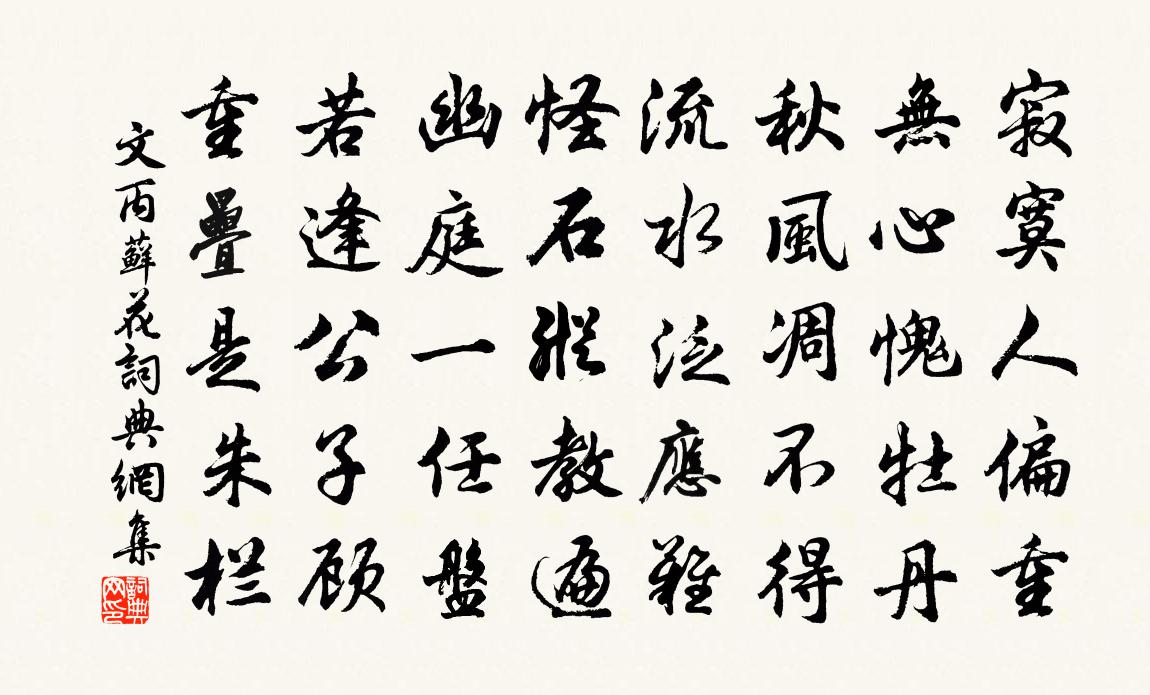 寂寞人偏重
無心愧牡丹
秋風凋不得
流水泛應難
怪石縱教遍
幽庭一任盤
若逢公子顾
重疊是朱栏
文丙蘚花詞典網集
詞典網印